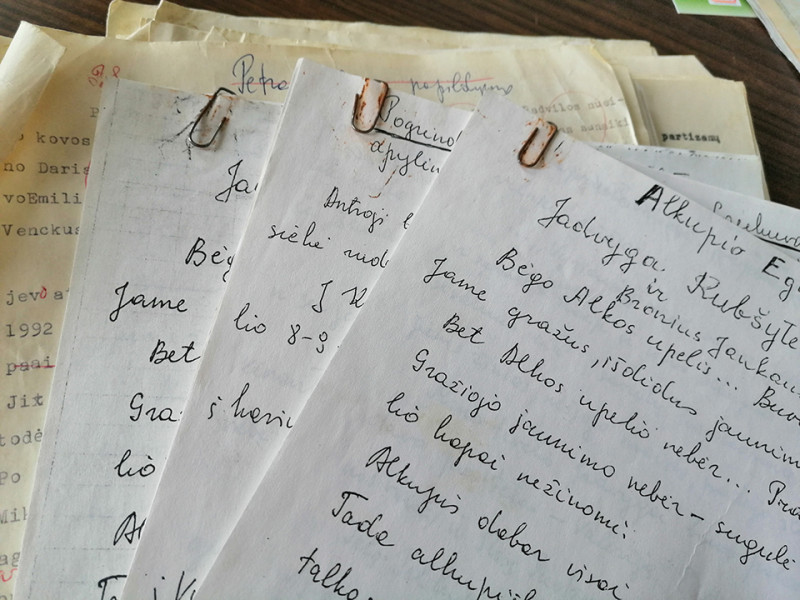 Petro papildymo
Radvilos nusi-
partizanų
kovos
no Daris
voEmili
Venckus
jevo at
1992
paai
Jit
todė
Po
Mil
ag
Ja
Bėg
Jame
Bet
Gra
lio
Al
Pogrind
apylin
Antroji
siekė nud
lio 8-9
Alkupio Eg
Jadvyga Rubšyte
ir Bronius Jankau
Bėgo Alkos upelis... Buv
Jame gražus, išdidus jaunim
Bet Alkos upelio nebėr...
Gražiojo jaunimo nebėr - sugulė
lio kapai nežinomi:
Alkupis dabar visai
Tada alkupi
talko